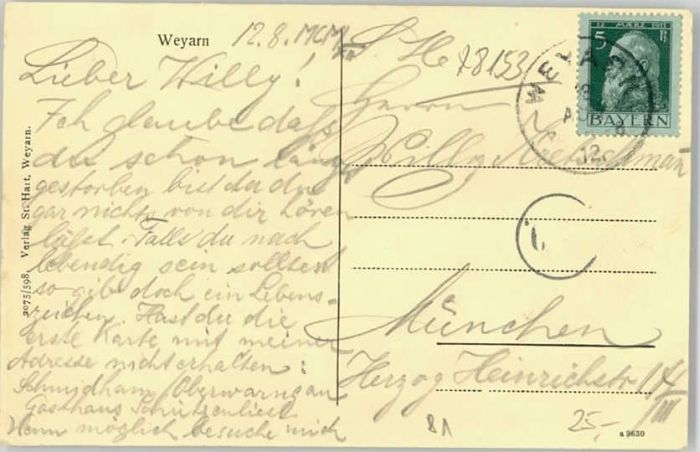 Weyarn 12.8.MCM
Lieber Willy!
Ich glaube daß
du schon längst
gestorben bist da du
gar nichts von dir hören
läßt. Falls du noch
lebendig sein solltest
so gib doch ein Lebens-
zeichen. Hast du die
erste Karte mit meiner
Adresse nicht erhalten:
Schmidham / Oberwarngau
Gasthaus Schützenliesl
Wenn möglich besuche mich
S. H.
78153
Herrn
Willy
München
Herzog Heinrichstr
III
12. MÄRZ 1911
5 Pf
BAYERN
WEYARN
AUG
12
2075/598. Verlag St. Hart, Weyarn.
25,-
a 9630